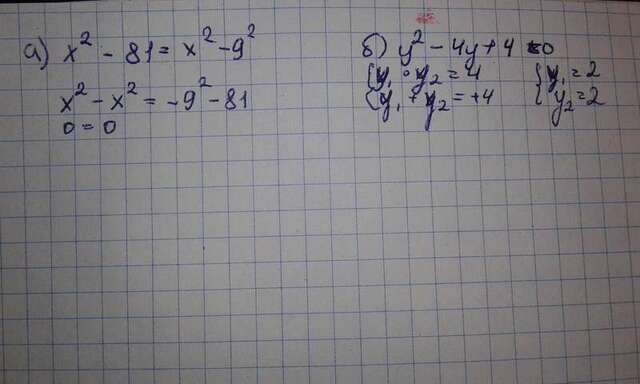 а) x² - 81 = x² - 9²
x² - x² = -9² - 81
0 = 0
б) y² - 4y + 4 = 0
{y₁ · y₂ = 4
{y₁ + y₂ = +4
{y₁ = 2
{y₂ = 2